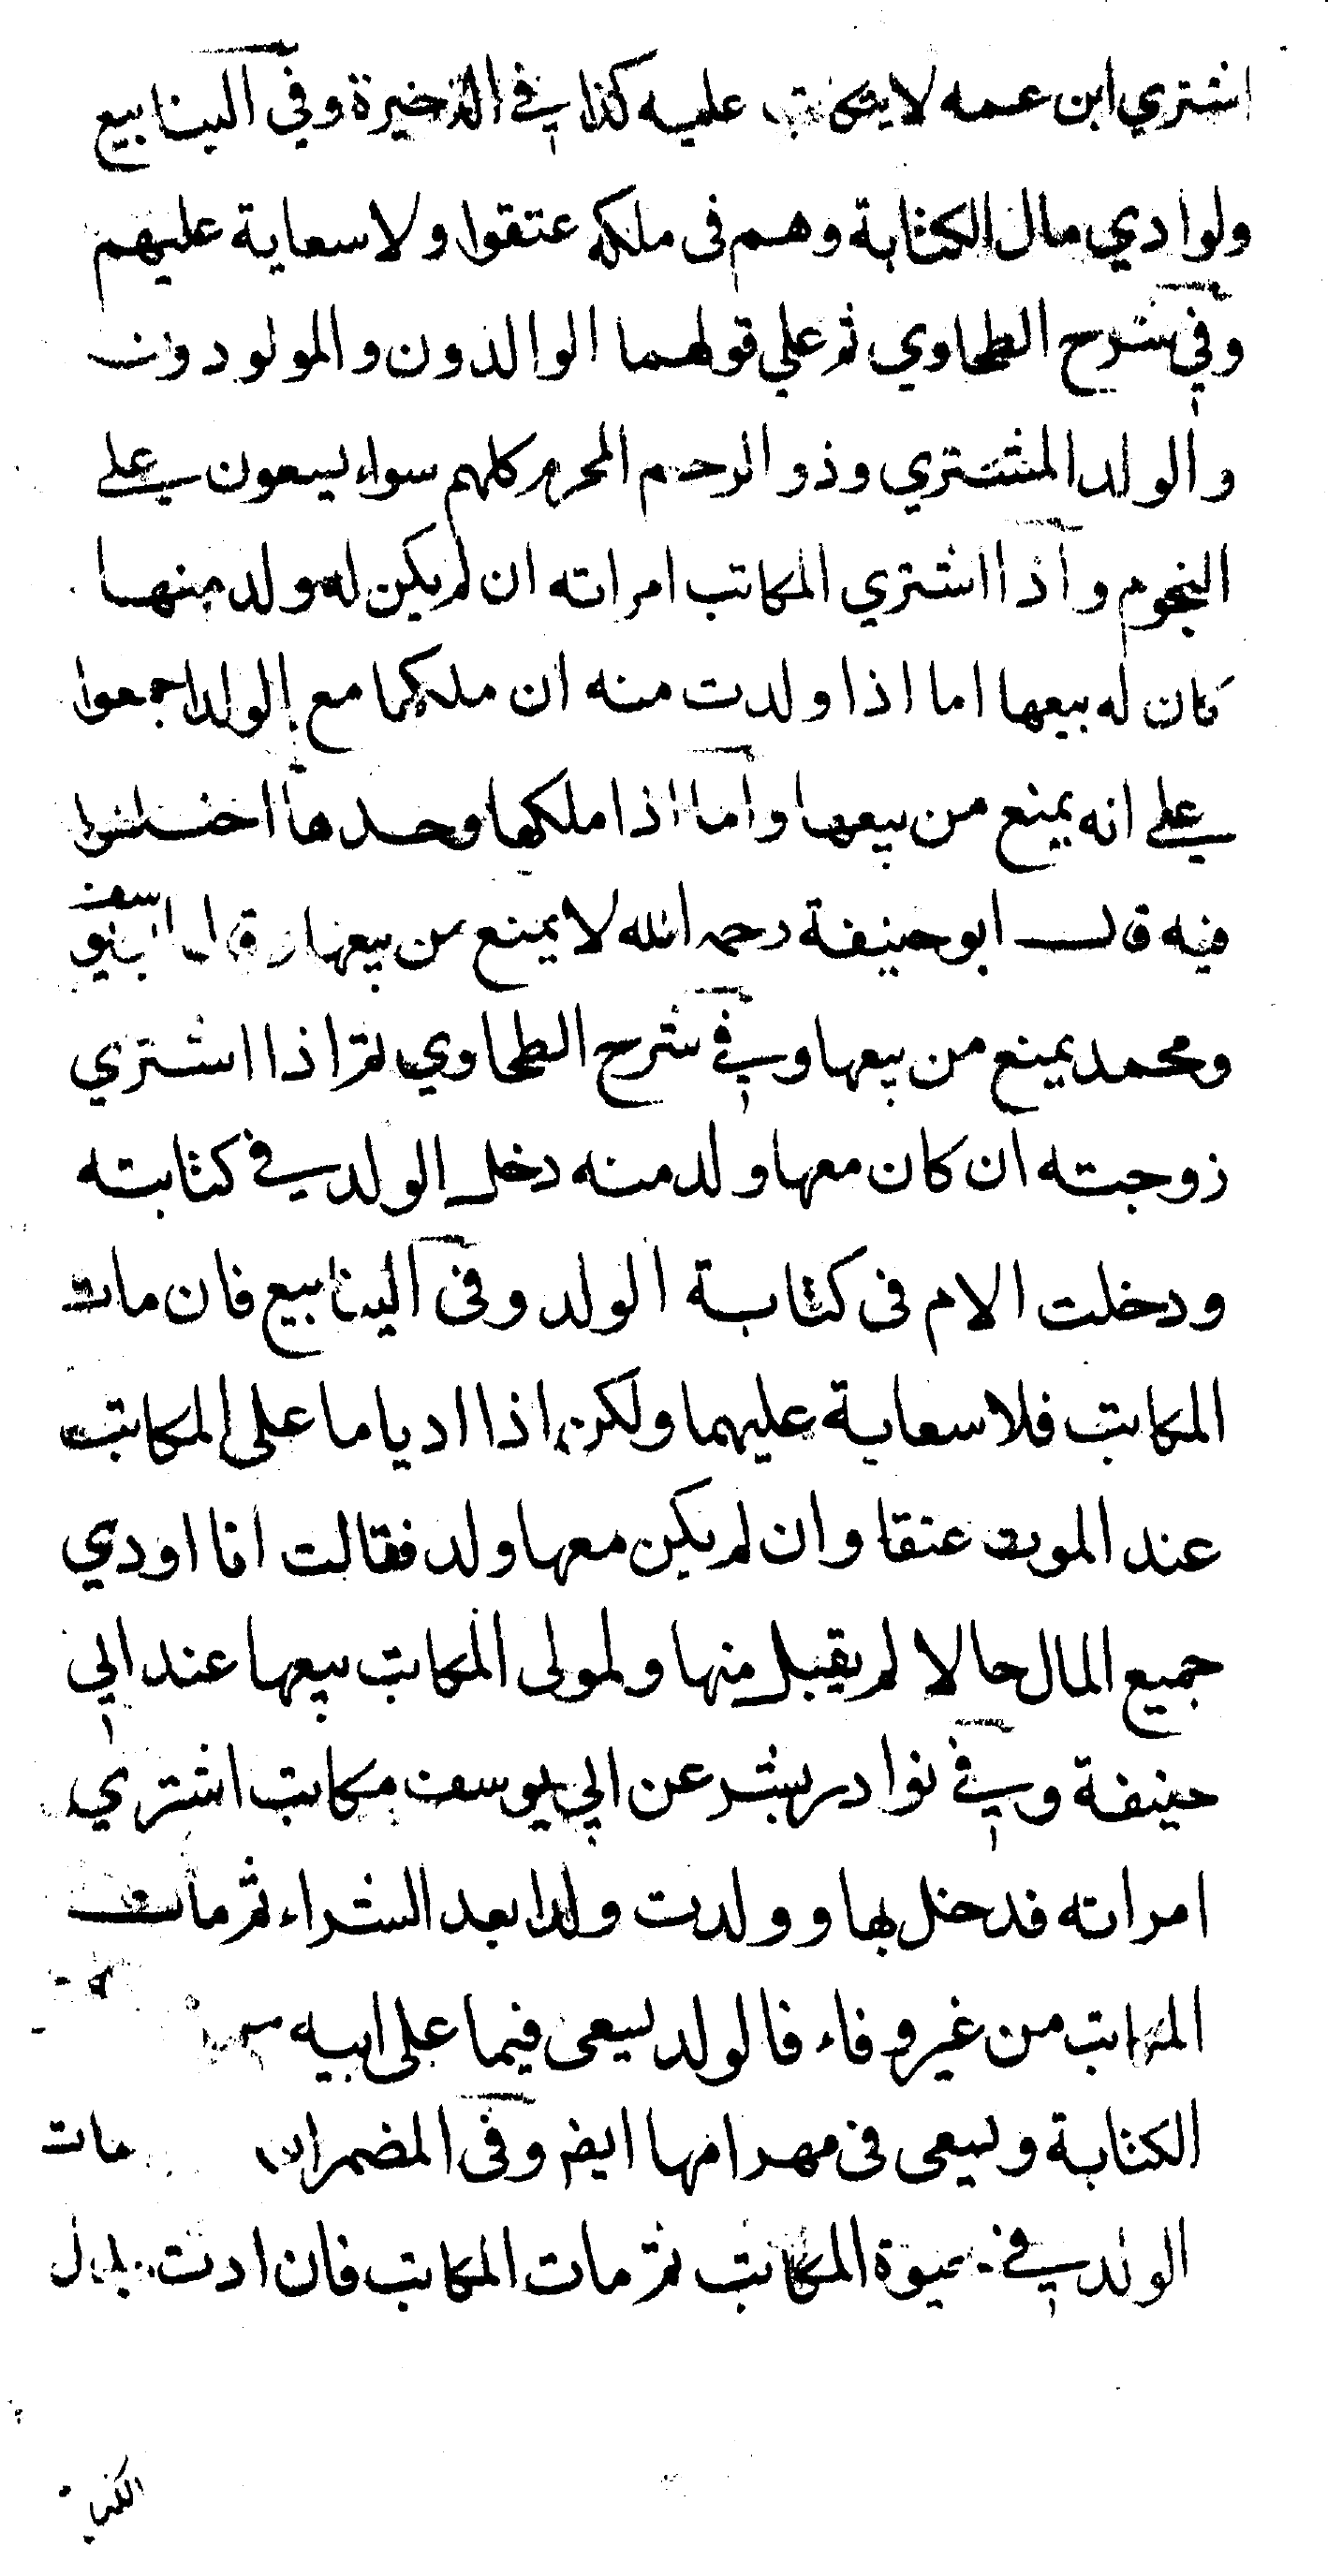 اشتري ابن عمه لا يتكاتب عليه كذا في الذخيرة وفي الينابيع
ولو ادي مال الكتابة وهم في ملكه عتقوا ولا سعاية عليهم
وفي شرح الطحاوي ثم علي قولهما الوالدون والمولودون
والولد المشتري وذو الرحم المحرم كلهم سواء يسعون علي
النجوم واذا اشتري المكاتب امراته ان لم يكن له ولد منها
كان له بيعها اما اذا ولدت منه ان ملكها مع الولد اجمعوا
علي انه يمنع من بيعها واما اذا ملكها وحدها اختلفوا
فيه قال ابو حنيفة رحمه الله لا يمنع من بيعها وقال ابو يوسف
ومحمد يمنع من بيعها وفي شرح الطحاوي ثم اذا اشتري
زوجته ان كان معها ولد منه دخل الولد في كتابته
ودخلت الام في كتابة الولد وفي الينابيع فان مات
المكاتب فلا سعاية عليهما ولكن اذا اديا ما على المكاتب
عند الموت عتقا وان لم يكن معها ولد فقالت انا اودي
جميع المال حالا لم يقبل منها ولمولى المكاتب بيعها عند ابي
حنيفة وفي نوادر بشر عن ابي يوسف مكاتب اشتري
امراته فدخل بها وولدت ولدا بعد الشراء ثم مات
المكاتب من غير وفاء فالولد يسعى فيما على ابيه من
الكتابة ويسعى في مهر امها ايضا وفي المضمرات مات
الولد في حيوة المكاتب ثم مات المكاتب فان ادت بدل